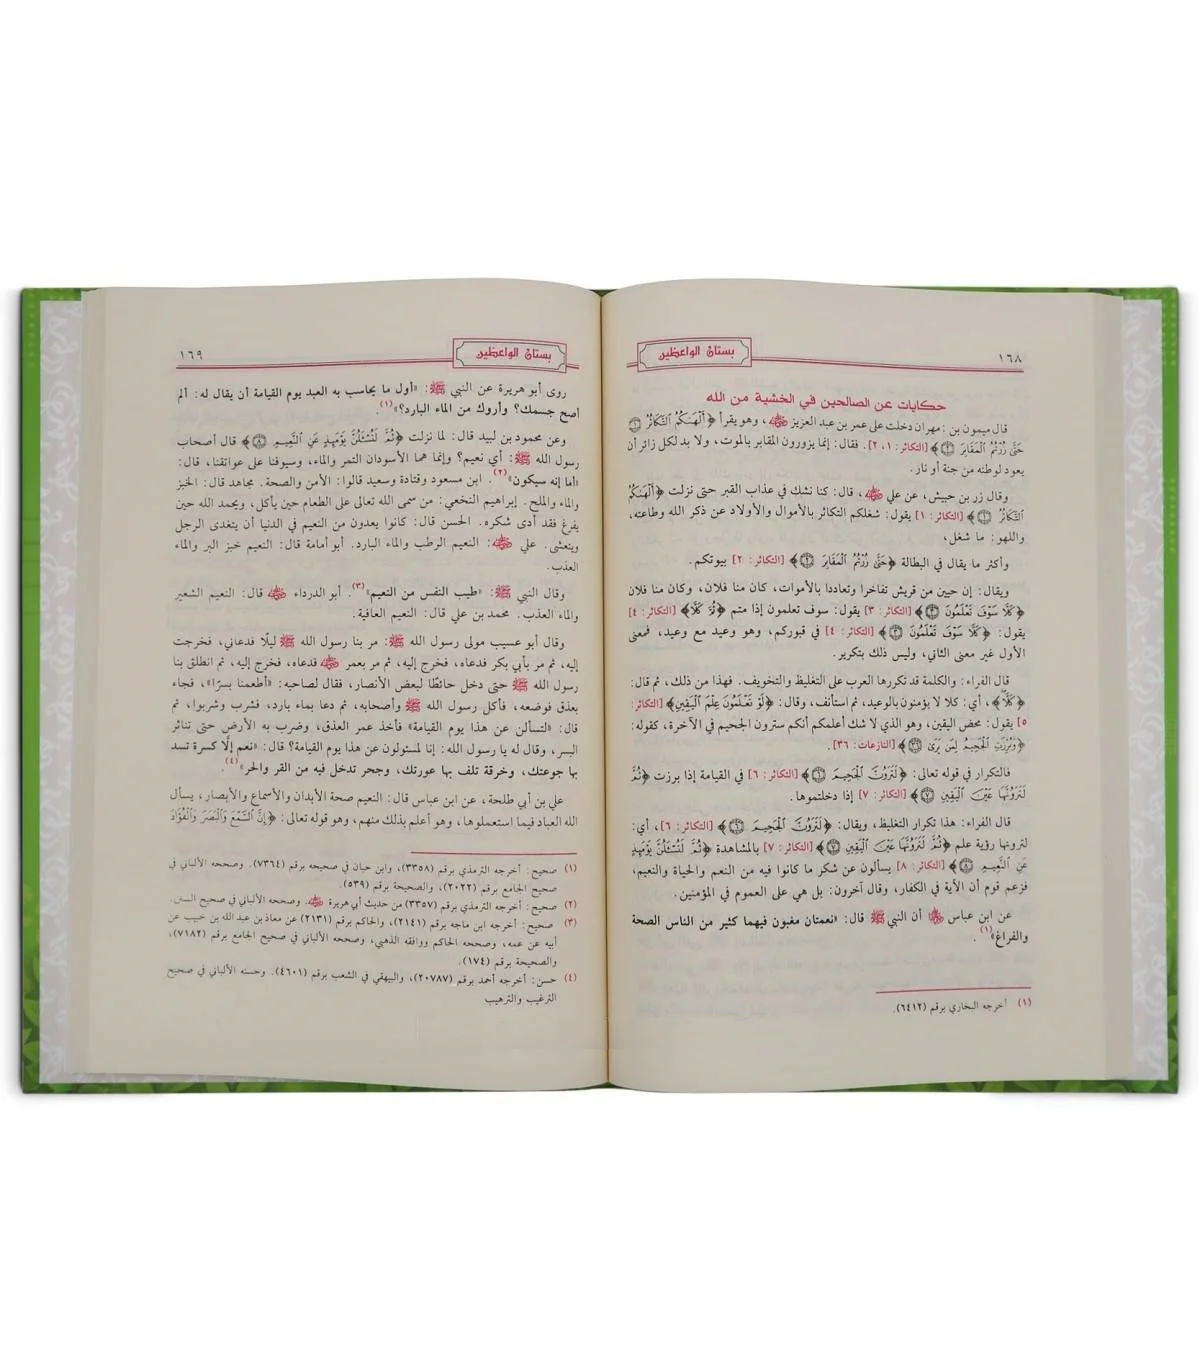 ١٦٨
بستان الواعظين
حكايات عن الصالحين في الخشية من الله
قال ميمون بن : مهران دخلت على عمر بن عبد العزيز ﷺ، وهو يقرأ ﴿أَلْهَىٰكُمُ ٱلتَّكَاثُرُ ١
حَتَّىٰ زُرْتُمُ ٱلْمَقَابِرَ ٢﴾ [التكاثر: ١، ٢]. فقال: إنما يزورون المقابر بالموت، ولا بد لكل زائر أن
يعود لوطنه من جنة أو نار.
وقال زر بن حبيش، عن علي ، قال: كنا نشك في عذاب القبر حتى نزلت ﴿أَلْهَىٰكُمُ
ٱلتَّكَاثُرُ ١﴾ [التكاثر: ١] يقول: شغلكم التكاثر بالأموال والأولاد عن ذكر الله وطاعته،
واللهو: ما شغل،
وأكثر ما يقال في البطالة ﴿حَتَّىٰ زُرْتُمُ ٱلْمَقَابِرَ ٢﴾ [التكاثر: ٢] بيوتكم.
ويقال: إن حين من قريش تفاخرا وتعاددا بالأموات، كان منا فلان، وكان منا فلان
﴿كَلَّا سَوْفَ تَعْلَمُونَ ٣﴾ [التكاثر: ٣] يقول: سوف تعلمون إذا متم ﴿ثُمَّ كَلَّا﴾ [التكاثر: ٤]
يقول: ﴿كَلَّا سَوْفَ تَعْلَمُونَ﴾ [التكاثر: ٤] في قبوركم، وهو وعيد مع وعيد، فمعنى
الأول غير معنى الثاني، وليس ذلك بتكرير.
قال الفراء: والكلمة قد تكررها العرب على التغليظ والتخويف. فهذا من ذلك، ثم قال:
﴿كَلَّا﴾، أي: كلا لا يؤمنون بالوعيد، ثم استأنف، وقال: ﴿لَوْ تَعْلَمُونَ عِلْمَ ٱلْيَقِينِ﴾ [التكاثر:
٥] يقول: محض اليقين، وهو الذي لا شك أعلمكم أنكم سترون الجحيم في الآخرة، كقوله:
﴿وَبُرِّزَتِ ٱلْجَحِيمُ لِمَن يَرَىٰ ٣٦﴾ [النازعات: ٣٦].
فالتكرار في قوله تعالى: ﴿لَتَرَوُنَّ ٱلْجَحِيمَ ٦﴾ [التكاثر: ٦] في القيامة إذا برزت ﴿ثُمَّ
لَتَرَوُنَّهَا عَيْنَ ٱلْيَقِينِ ٧﴾ [التكاثر: ٧] إذا دخلتموها.
قال الفراء: هذا تكرار التغليظ، ويقال: ﴿لَتَرَوُنَّ ٱلْجَحِيمَ ٦﴾ [التكاثر: ٦]، أي:
لترونها رؤية علم ﴿ثُمَّ لَتَرَوُنَّهَا عَيْنَ ٱلْيَقِينِ ٧﴾ [التكاثر: ٧] بالمشاهدة ﴿ثُمَّ لَتُسْـَٔلُنَّ يَوْمَئِذٍ
عَنِ ٱلنَّعِيمِ ٨﴾ [التكاثر: ٨] يسألون عن شكر ما كانوا فيه من النعم والحياة والنعيم،
فزعم قوم أن الآية في الكفار، وقال آخرون: بل هي على العموم في المؤمنين.
عن ابن عباس أن النبي ﷺ قال: «نعمتان مغبون فيهما كثير من الناس الصحة
والفراغ»(١).
(١) أخرجه البخاري برقم (٦٤١٢).
بستان الواعظين
١٦٩
روى أبو هريرة عن النبي ﷺ: «أول ما يحاسب به العبد يوم القيامة أن يقال له: ألم
أصح جسمك؟ وأروك من الماء البارد؟»(١).
وعن محمود بن لبيد قال: لما نزلت ﴿ثُمَّ لَتُسْـَٔلُنَّ يَوْمَئِذٍ عَنِ ٱلنَّعِيمِ ٨﴾ قال أصحاب
رسول الله ﷺ: أي نعيم؟ وإنما هما الأسودان التمر والماء، وسيوفنا على عواتقنا، قال:
«أما إنه سيكون»(٢). ابن مسعود وقتادة وسعيد قالوا: الأمن والصحة. مجاهد قال: الخبز
والماء والملح. إبراهيم النخعي: من سمى الله تعالى على الطعام حين يأكل، ويحمد الله حين
يفرغ فقد أدى شكره. الحسن قال: كانوا يعدون من النعيم في الدنيا أن يتغدى الرجل
ويتعشى. علي : النعيم الرطب والماء البارد. أبو أمامة قال: النعيم خبز البر والماء
العذب.
وقال النبي ﷺ: «طيب النفس من النعيم»(٣). أبو الدرداء قال: النعيم الشعير
والماء العذب. محمد بن علي قال: النعيم العافية.
وقال أبو عسيب مولى رسول الله ﷺ: مر بنا رسول الله ﷺ ليلًا فدعاني، فخرجت
إليه، ثم مر بأبي بكر فدعاه، فخرج إليه، ثم مر بعمر فدعاه، فخرج إليه، ثم انطلق بنا
رسول الله ﷺ حتى دخل حائطًا لبعض الأنصار، فقال لصاحبه: «أطعمنا بسرًا»، فجاء
بعذق فوضعه، فأكل رسول الله ﷺ وأصحابه، ثم دعا بماء بارد، فشرب وشربوا، ثم
قال: «لتسألن عن هذا يوم القيامة» فأخذ عمر العذق، وضرب به الأرض حتى تناثر
البسر، وقال له يا رسول الله: إنا لمسئولون عن هذا يوم القيامة؟ قال: «نعم إلَّا كسرة تسد
بها جوعتك، وخرقة تلف بها عورتك، وجحر تدخل فيه من القر والحر»(٤).
علي بن أبي طلحة، عن ابن عباس قال: النعيم صحة الأبدان والأسماع والأبصار، يسأل
الله العباد فيما استعملوها، وهو أعلم بذلك منهم، وهو قوله تعالى: ﴿إِنَّ ٱلسَّمْعَ وَٱلْبَصَرَ وَٱلْفُؤَادَ
(١) صحيح: أخرجه الترمذي برقم (٣٣٥٨)، وابن حبان في صحيحه برقم (٧٣٦٤). وصححه الألباني في
صحيح الجامع برقم (٢٠٢٢)، والصحيحة برقم (٥٣٩).
(٢) صحيح: أخرجه الترمذي برقم (٣٣٥٧) من حديث أبي هريرة . وصححه الألباني في صحيح السنن.
(٣) صحيح: أخرجه ابن ماجه برقم (٢١٤١)، والحاكم برقم (٢١٣١) عن معاذ بن عبد الله بن خبيب عن
أبيه عن عمه، وصححه الحاكم ووافقه الذهبي، وصححه الألباني في صحيح الجامع برقم (٧١٨٢)،
والصحيحة برقم (١٧٤).
(٤) حسن: أخرجه أحمد برقم (٢٠٧٨٧)، والبيهقي في الشعب برقم (٤٦٠١). وحسنه الألباني في صحيح
الترغيب والترهيب